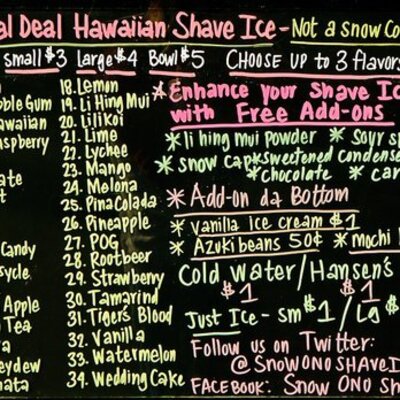 al Deal Hawaiian Shave Ice - Not a snow Co
small $3 Large $4 Bowl $5 Choose up to 3 flavors
bble Gum
awaiian
aspberry
ate
t
Candy
sycle
Apple
Tea
a
eydew
nata
18. Lemon
19. Li Hing Mui
20. Lilikoi
21. Lime
22. Lychee
23. Mango
24. Melona
25. Pina Colada
26. Pineapple
27. POG
28. Rootbeer
29. Strawberry
30. Tamarind
31. Tiger's Blood
32. Vanilla
33. Watermelon
34. Wedding Cake
* Enhance your Shave Ic
with Free Add-ons
* li hing mui powder * Sour sp
* snow cap * sweetened condense
* chocolate * car
* Add-on da Bottom
* vanilla ice cream $1
* Azuki beans 50¢ * mochi
Cold Water / Hansen's
$1 $1
Just Ice - sm $1 / Lg $
Follow us on Twitter:
@SnowONOSHAveI
FACEBOOK: Snow ONO Sh